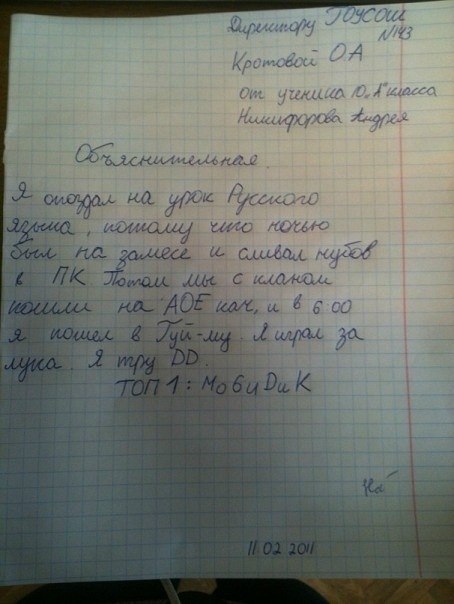 Директору ГОУСОШ
№143
Кротовой ОА
от ученика 10 „А" класса
Никифорова Андрея
Объяснительная.
Я опоздал на урок Русского
языка, потому что ночью
был на замесе и сливал нубов
в ПК. Потом мы с кланом
пошли на АОЕ кач, и в 6:00
я пошел в Гуй-му. Я играл за
лука. Я тру DD.
ТОП 1: МоБиDиК
11.02.2011